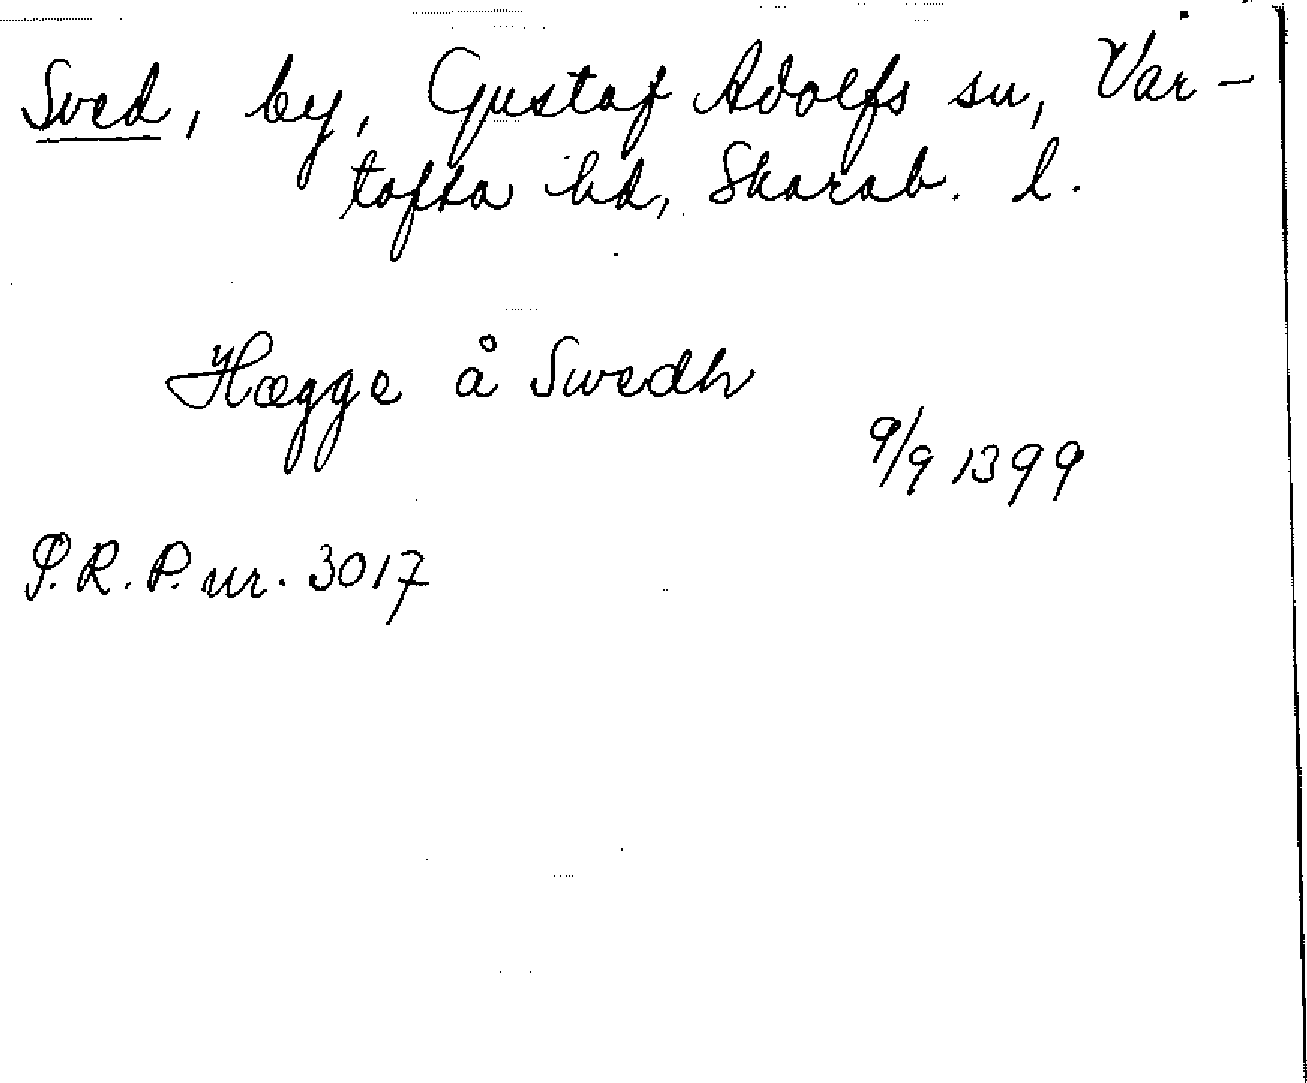 Sved, by, Gustaf Adolfs sn, Var-
tofta hd, Skarab. l.
Hægge å Swedh
9/9 1399
P.R.P. nr. 3017